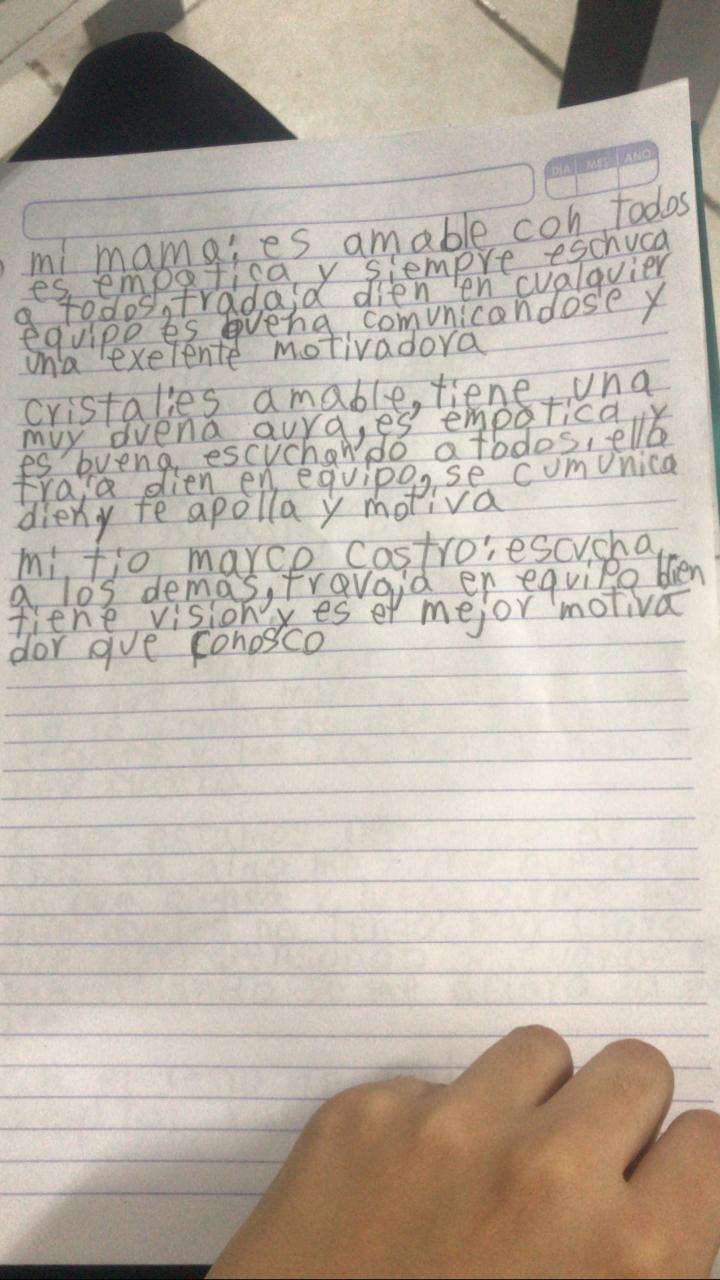 DIA MES AÑO
mi mama: es amable con todos
es empatica y siempre eschuca
a todos, tradaja dien en cualquier
equipo es buena comunicandose y
una exelente motivadora
cristal: es amable, tiene una
muy duena aura, es empatica y
es buena escuchando a todos, ella
traja dien en equipo, se cumunica
dien y te apolla y motiva
mi tio marco castro: escucha
a los demas, travaja en equipo bien
tiene vision y es el mejor motiva
dor que conosco